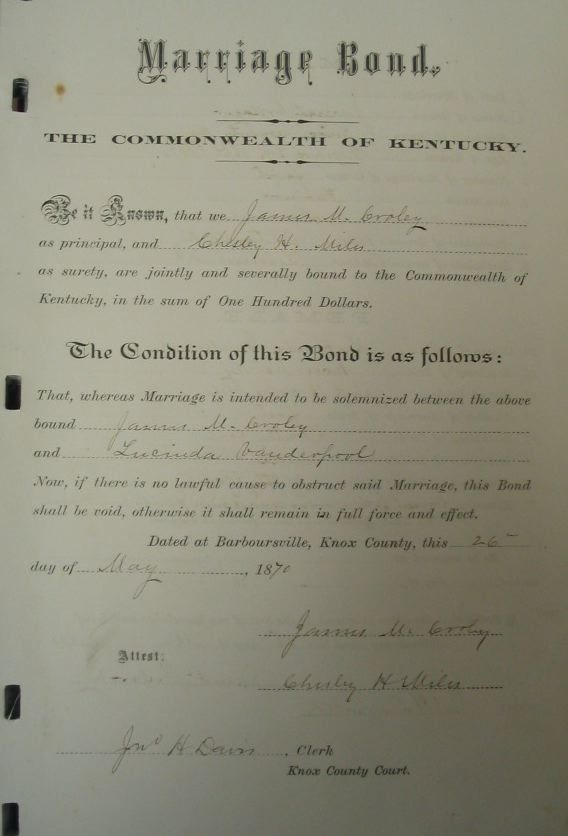 Marriage Bond.
THE COMMONWEALTH OF KENTUCKY.
Be it Known, that we James M. Croley
as principal, and Chesley H. Miles
as surety, are jointly and severally bound to the Commonwealth of
Kentucky, in the sum of One Hundred Dollars.
The Condition of this Bond is as follows:
That, whereas Marriage is intended to be solemnized between the above
bound James M. Croley
and Lucinda Vanderpool
Now, if there is no lawful cause to obstruct said Marriage, this Bond
shall be void, otherwise it shall remain in full force and effect.
Dated at Barboursville, Knox County, this 26
day of May, 1870
James M. Croley
Attest:
Chesley H Miles
Jno H Davis, Clerk
Knox County Court.